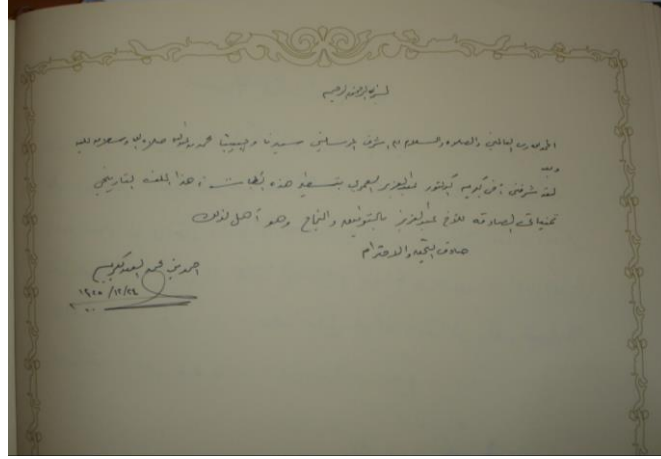 بسم الله الرحمن الرحيم
الحمد لله رب العالمين والصلاة والسلام على اشرف المرسلين سيدنا وحبيبنا محمد رسول الله صلى الله وسلم عليه
وبعد
لقد شرفني أخي الدكتور عبدالعزيز العمري بتسطير هذه الكلمات في هذا الملف التاريخي
تمنياتي الصادقة للأخ عبدالعزيز بالتوفيق والنجاح وهو أهل لذلك
صادق التحية والاحترام
احمد بن محمد